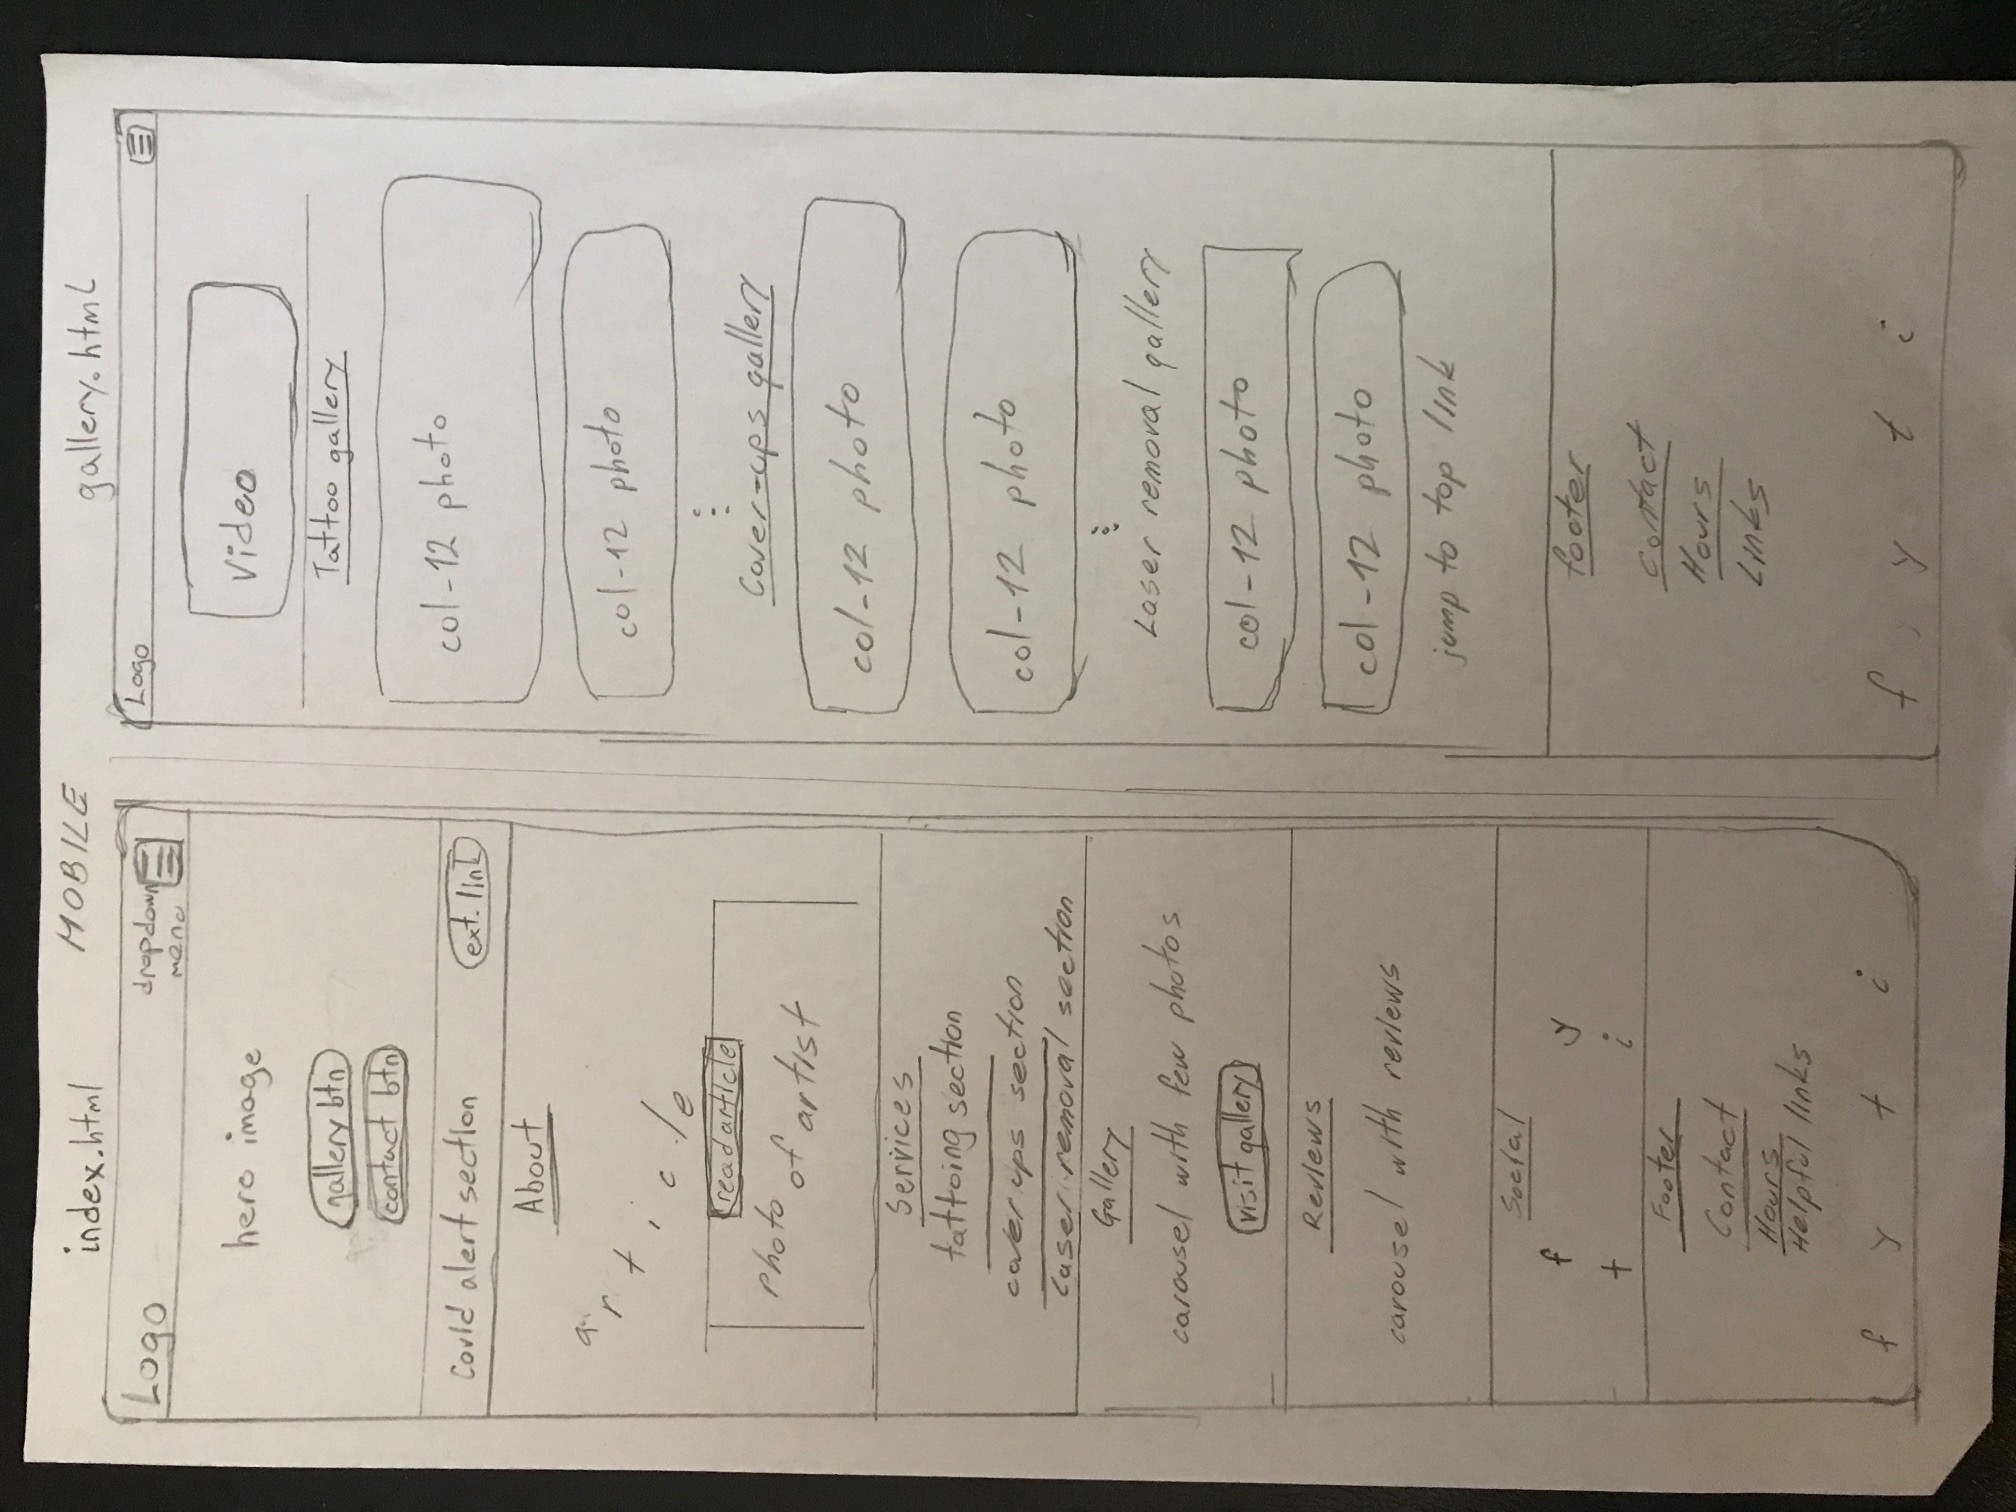 MOBILE
index.html
Logo
dropdown
menu
hero image
gallery btn
contact btn
Covid alert section
ext. link
About
article
read article
Photo of artist
Services
tattoing section
cover ups section
Laser removal section
Gallery
carousel with few photos
visit gallery
Reviews
carousel with reviews
Social
f y
t i
Footer
Contact
Hours
Helpful links
f y t i
gallery.html
Logo
Video
Tattoo gallery
col-12 photo
col-12 photo
Cover-ups gallery
col-12 photo
col-12 photo
Laser removal gallery
col-12 photo
col-12 photo
jump to top link
footer
contact
Hours
Links
f y t i